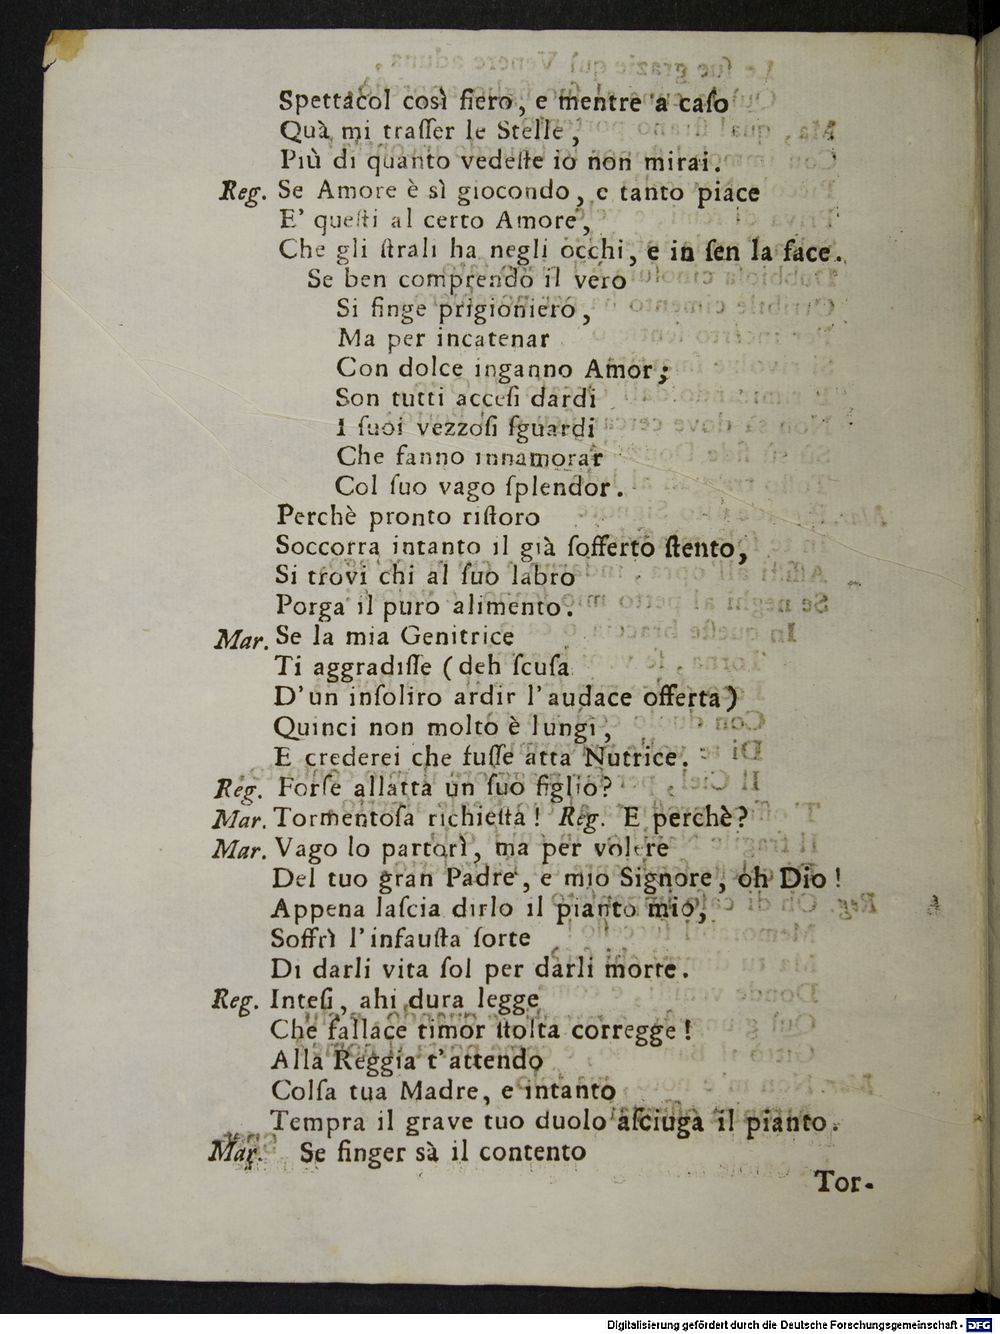 Spettacol così fiero, e mentre a caſo
Quà mi traſſer le Stelle,
Più di quanto vedeſte io non mirai.
Reg. Se Amore è sì giocondo, e tanto piace
E' queſti al certo Amore,
Che gli ſtrali ha negli occhi, e in ſen la face.
Se ben comprendo il vero
Si finge prigioniero,
Ma per incatenar
Con dolce inganno Amor;
Son tutti acceſi dardi
I ſuoi vezzoſi ſguardi
Che fanno innamorar
Col ſuo vago ſplendor.
Perchè pronto riſtoro
Soccorra intanto il già ſofferto ſtento,
Si trovi chi al ſuo labro
Porga il puro alimento.
Mar. Se la mia Genitrice
Ti aggradiſſe (deh ſcuſa
D'un inſoliro ardir l'audace offerta)
Quinci non molto è lungi,
E crederei che fuſſe atta Nutrice.
Reg. Forſe allatta un ſuo figlio?
Mar. Tormentoſa richieſta! Reg. E perchè?
Mar. Vago lo partorì, ma per volere
Del tuo gran Padre, e mio Signore, oh Dio!
Appena laſcia dirlo il pianto mio,
Soffrì l'infauſta ſorte
Di darli vita ſol per darli morte.
Reg. Inteſi, ahi dura legge
Che fallace timor ſtolta corregge!
Alla Reggia t'attendo
Colſa tua Madre, e intanto
Tempra il grave tuo duolo aſciuga il pianto.
Mar. Se finger sà il contento
Tor-
Digitalisierung gefördert durch die Deutsche Forschungsgemeinschaft - DFG